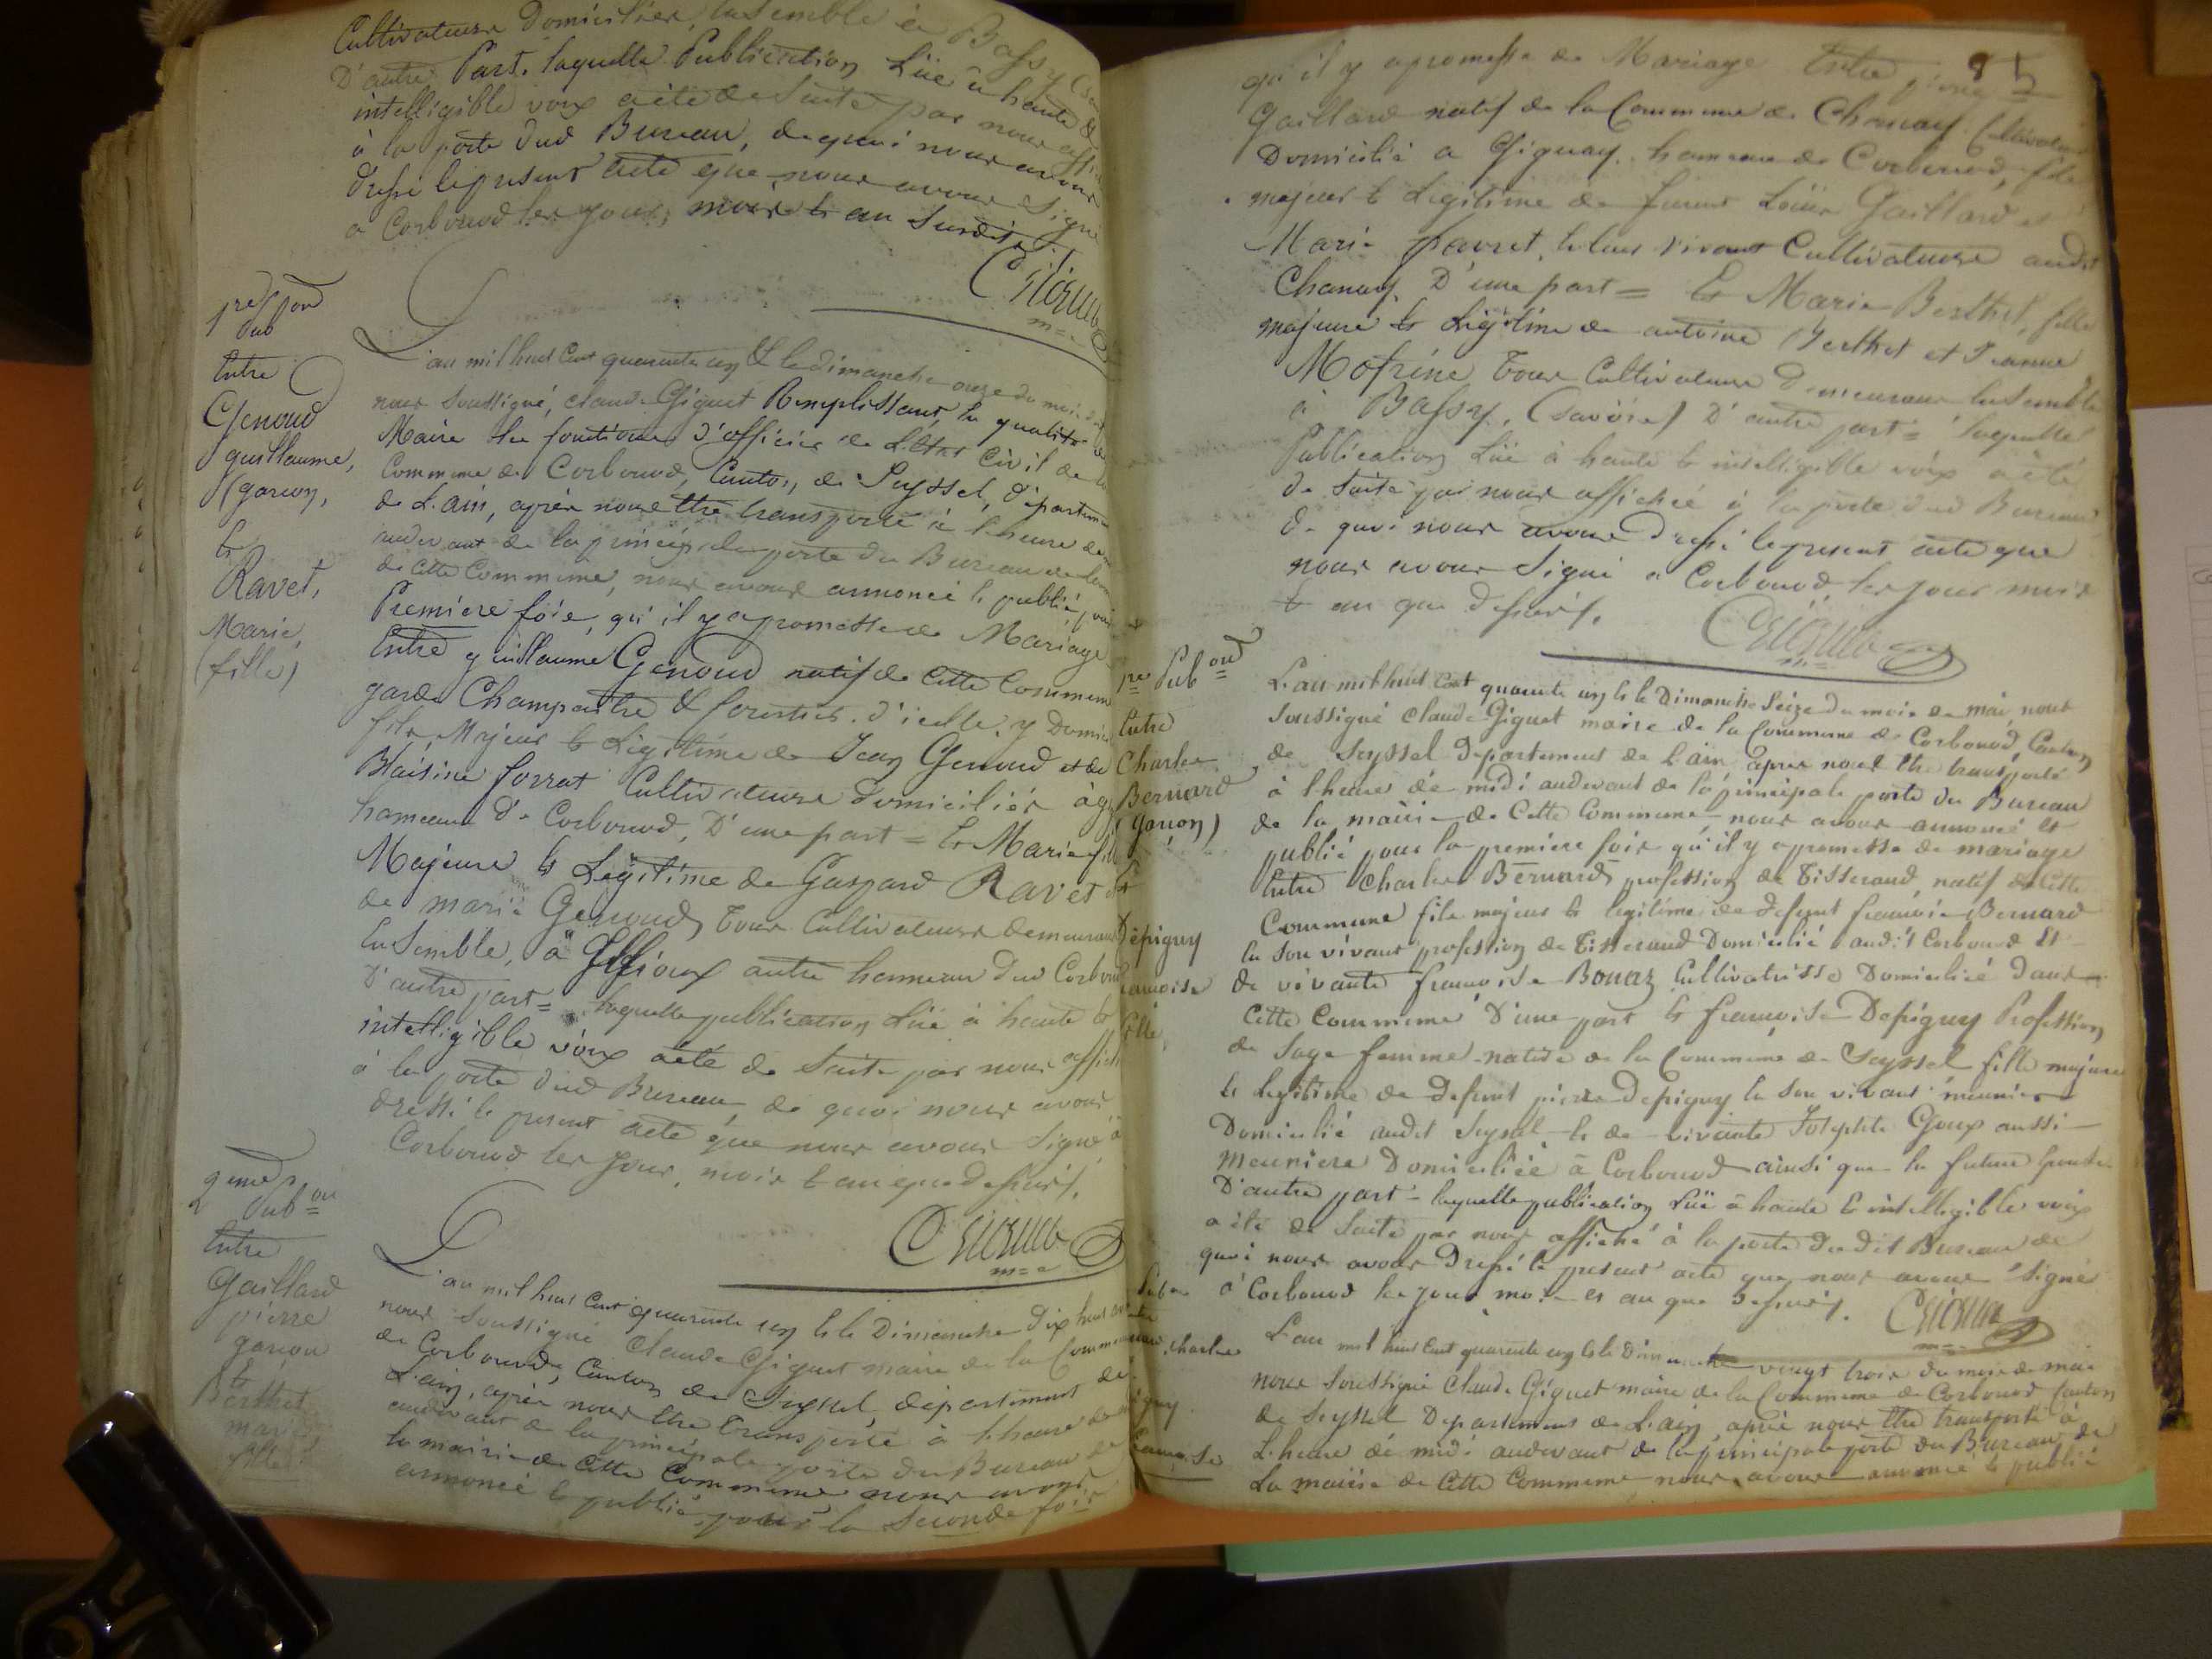 Cultivateurs Domiciliés ensemble à Bassy
D'autre Part. laquelle Publication Lüe à haute &
intelligible voix a été de Suite par nous
à la porte dud Bureau, de quoi nous avons
dressé le présent acte que nous avons Signé
à Corbonod les jour, mois et an Susdits.
1re
Pub
Entre
Genoud
guillaume,
(garcon,
et
Ravet,
Marie,
(fille)
L'an mil huit Cent quarante un & le dimanche onze du mois
nous Soussigné, claude Giguet Remplissant, la qualité de
Maire les fonctions d'officier de L'Etat Civil de la
Commune de Corbonod, Canton, de Seyssel, départem
de L'ain, après nous être transporté à l'heure de
audevant de la principale porte du Bureau de la
de cette Commune, nous avons annoncé et publié, pour
Premiere fois, qu'il y a promesse de Mariage
Entre guillaume Genoud natif de cette Commune
garde Champaitre & forestier d'icelle, y Domi
fils Majeur et Légitime de Jean Genoud et de
Blaisine forrat Cultivateurs domiciliés à
hameau de Corbonod, D'une part = Et Marie fille
Majeure et Légitime de Gaspard Ravet
de marie Genoud, tous Cultivateurs demeurant
Ensemble, à autre hameau dud Corbonod
D'autre part = laquelle publication Lüe à haute et
intelligible voix a été de Suite par nous affich
à la porte dud Bureau, de quoi nous avons
dressé le present acte que nous avons Signé, à
Corbonod les jour, mois et an que dessus.
2eme
Pubon
Entre
Gaillard
pierre
garcon
et
Berthet
marie
fille
L'an mil huit Cent quarante un et le Dimanche Dix huit
nous soussigné Claude Giguet maire de la Commune
de Corbonod, Canton de Seyssel, département de
L'ain, après nous être transporté à l'heure de
audevant de la principale porte du Bureau de
la mairie de Cette Commune nous avons
annoncé et publié, pour la Seconde fois
85
qu'il y a promesse de Mariage Entre pierre
Gaillard natif de la Commune de Chanay Cultivateur
Domicilié a Gignay, hameau de Corbonod, fils
majeur et Légitime de Louis Gaillard et
Marie pavret, de leur vivant Cultivateurs audit
Chanay, D'une part = Et Marie Berthet, fille
majeure et Légitime de antoine Berthet et Jeanne
tous Cultivateurs Demeurant Ensemble
à Bassy, (Savoie) D'autre part = laquelle
Publication Lüe à haute et intelligible voix a été
de Suite par nous affichée à la porte dud Bureau
de quoi nous avons dressé le present acte que
nous avons Signé à Corbonod, les jour mois
et an que Dessus.
1re Pubon
Entre
Charles
Bernard
(garcon)
Et
Dépigny
francoise
fille,
L'an mil huit Cent quarante un et le Dimanche Seize du mois de mai, nous
Soussigné claude Giguet maire de la Commune de Corbonod, Canton
de Seyssel Departement de L'ain après nous être transporté
à l'heure de midi audevant de la principale porte du Bureau
de la mairie de Cette Commune nous avons annoncé et
publié pour la premiere fois qu'il y a promesse de mariage
Entre Charles Bernard, profession de Tisserand, natif de Cette
Commune fils majeur et legitime de defunt francois Bernard
en son vivant profession de Tisserand Domicilié audit Corbonod Et
de vivante francoise Bouaz Cultivatrisse Domiciliée dans
Cette Commune D'une part et francoise Depigny Profession
de Sage femme native de la Commune de Seyssel fille majeure
et legitime de Defunt pierre Depigny en Son vivant meunier
Domicilié audit Seyssel, et de vivante Josephte Goux aussi
meuniere Domiciliée à Corbonod ainsi que la future Epouse
D'autre part = laquelle publication Lüe à haute et intelligible voix
a été de Suite par nous affiché à la porte du dit Bureau de
quoi nous avons Dressé le present acte que nous avons Signé
à Corbonod les jour mois et an que Dessus.
Charles
L'an mil huit Cent quarante un et le Dimanche vingt trois du mois de mai
nous Soussigné Claude Giguet maire de la Commune de Corbonod Canton
de Seyssel Departement de L'ain, après nous être transporté à
L'heure de midi audevant de la principale porte du Bureau de
La mairie de Cette Commune nous avons annoncé et publié